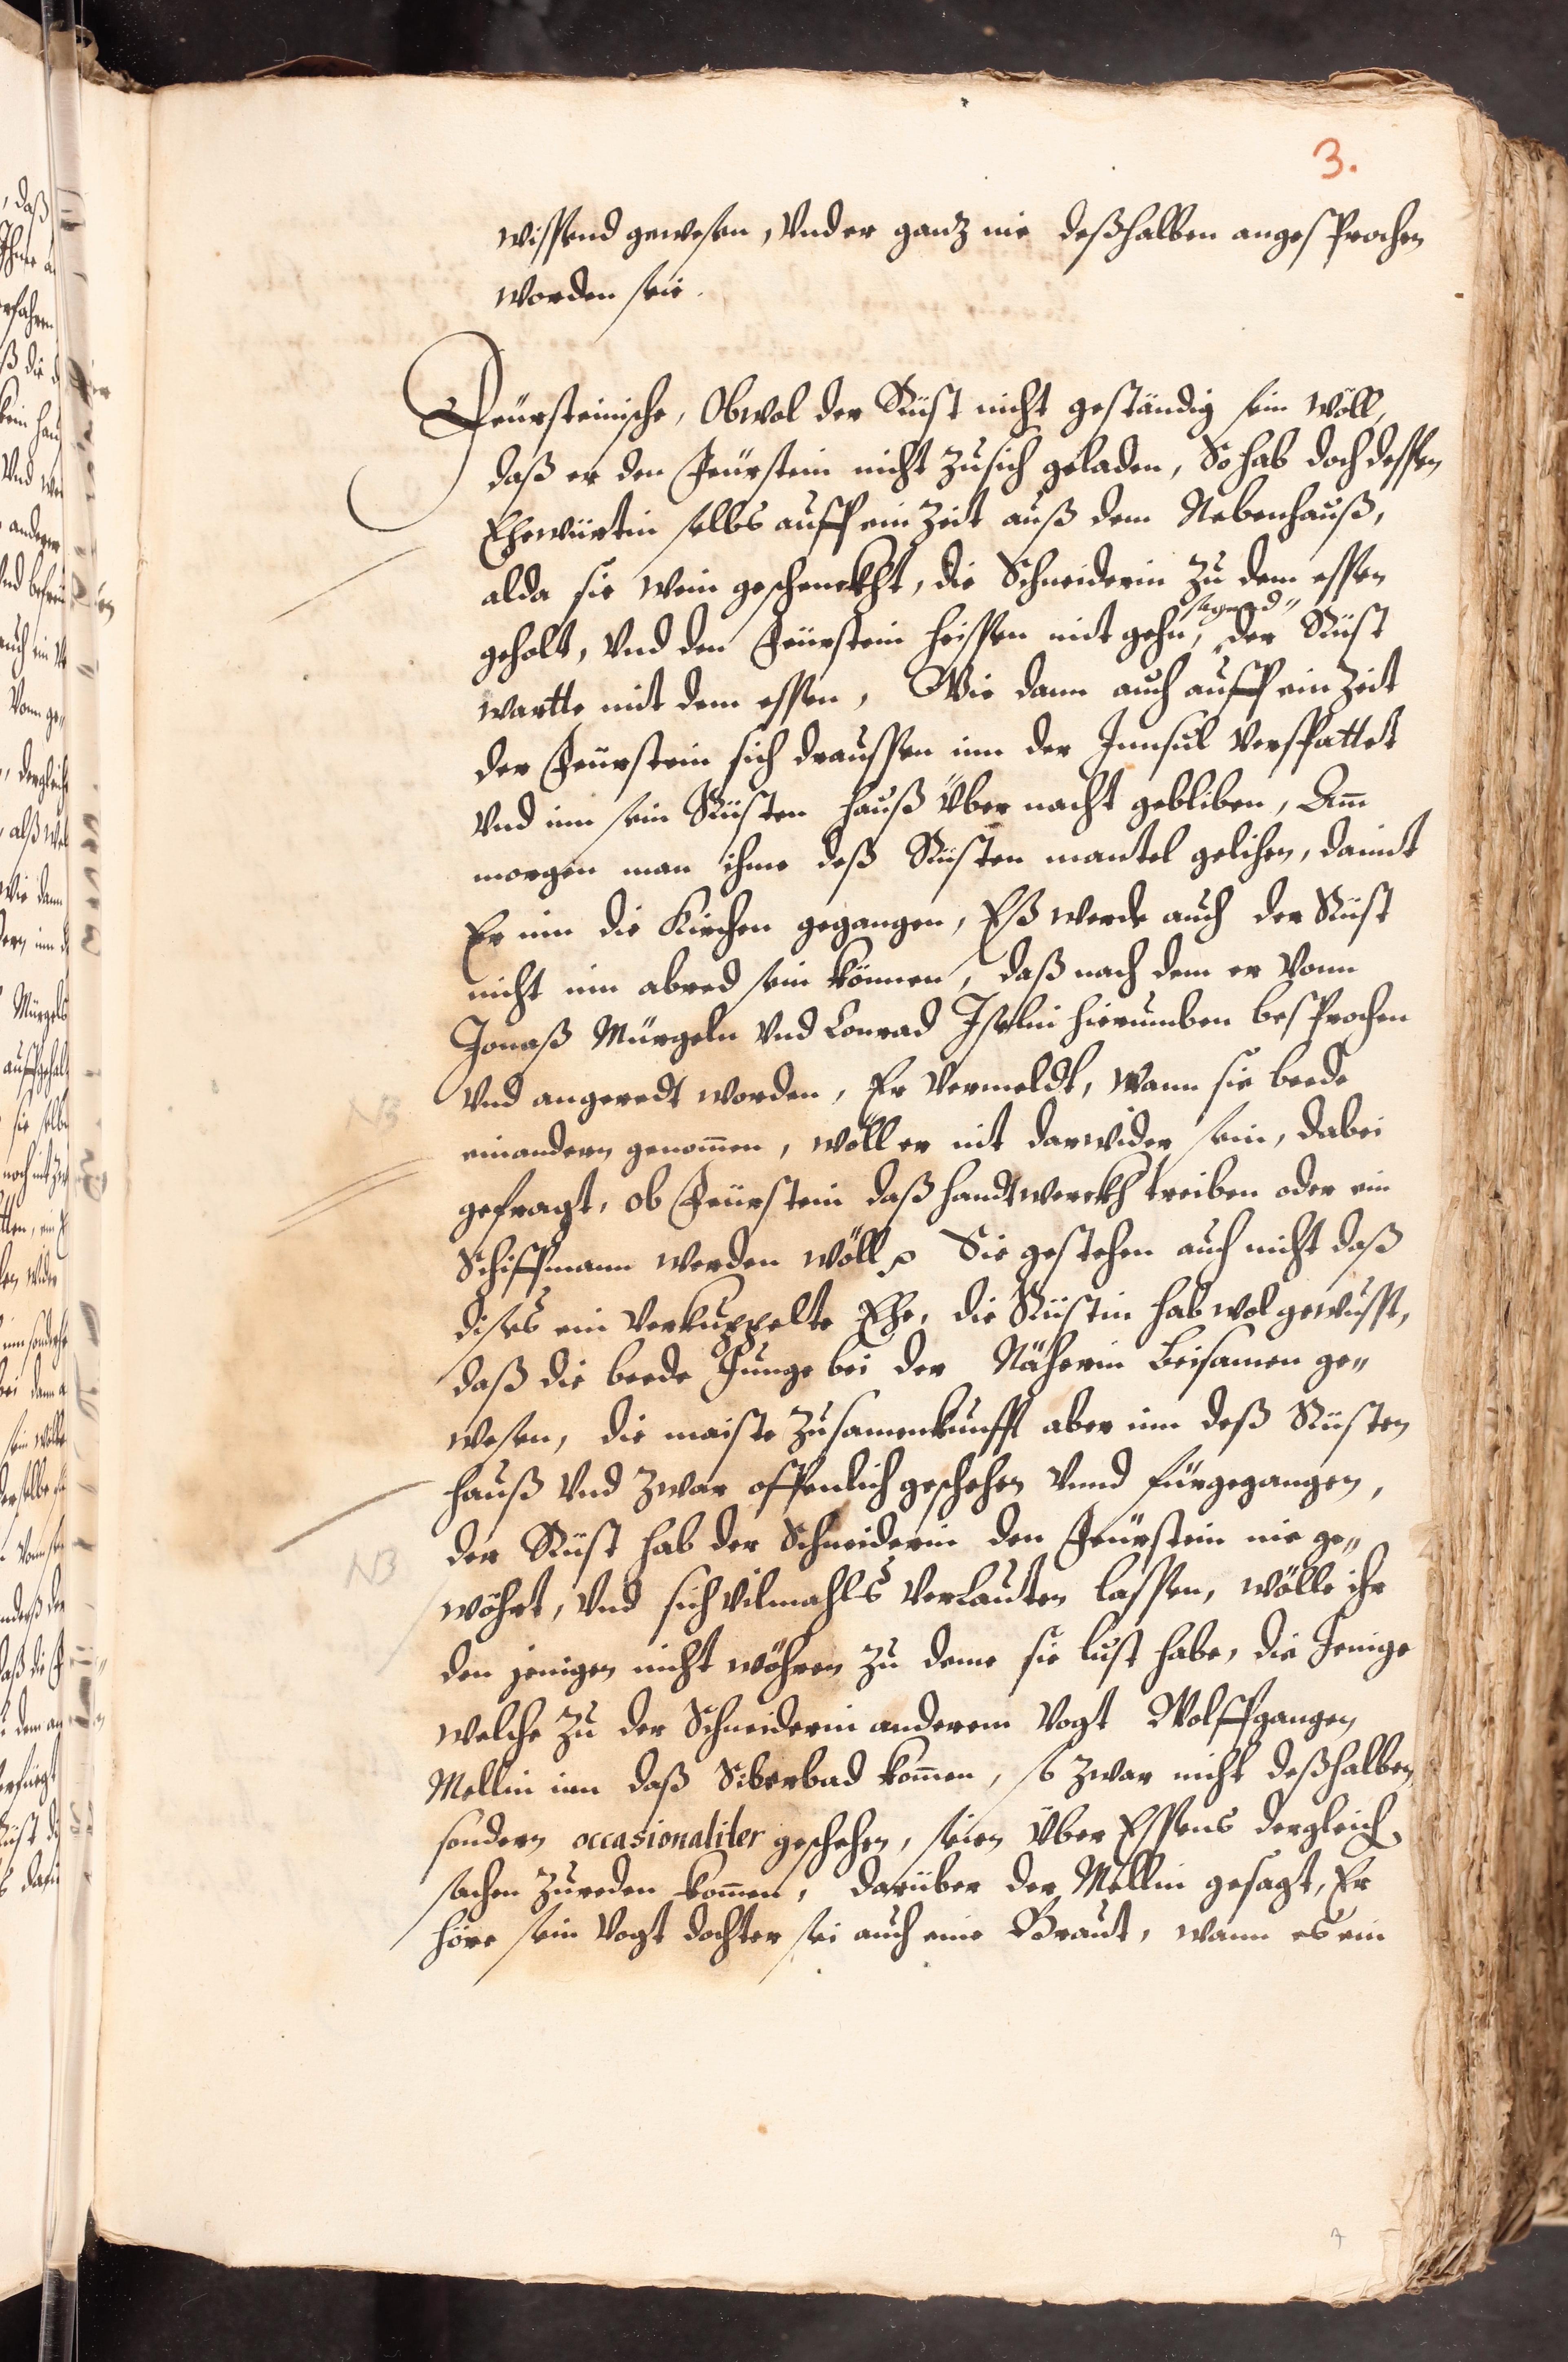 3.
wissend gewesen, Vnd er ganz nie deßhalben angesprochen
worden seie.
Feürsteinische, Obwol der Rüst nicht geständig sein wöll,
daß er den Feürstein nicht zu sich geladen, So hab doch dessen
Ehewürtin selbs auff ein Zeit auß dem Nebenhauß,
alda sie wein geschenckht, die Schneiderin zu dem essen
sagend"
geholt, Vnd den Feürstein heissen mit gehn, der Rüst
wartte mit dem essen, Wie dann auch auff ein Zeit
der Feürstein sich draussen inn der Innsul verspattet
Vnd inn sein Rüsten hauß über nacht gebliben, Am̄
morgen man ihme deß Rüsten mantel gelihen, damit
Er inn die Kirchen gegangen, Eß werde auch der Rüst
nicht inn abred sein können, daß nach dem er vonn
Jonaß Mürgeln Vnd Conrad Iselin hierumben besprochen
Vnd angeredt worden, Er vermeldt, wann sie beede
NB
einandern genom̄en, wöll er nit darwider sein, dabei
gefragt, ob Feürstein daß handtwerckh treiben oder ein
Schiffmann werden wöll, Sie gestehen auch nicht daß
dises ein verkuppelte Ehe, die Rüstin hab wol gewusst,
daß die beede Junge bei der Näherin beisamen ge"
wesen, die maiste Zusamenkunfft aber inn deß Rüsten
hauß Vnd zwar offenlich geschehen Vnnd fürgegangen,
der Rüst hab der Schneiderin den Feürstein nie ge"
NB
wöhrt, Vnd sich vilmahls verlauten lassen, wölle ihr
den jenigen nicht wöhren zu deme sie lust habe, die Jenige
welche zu der Schneiderin anderem Vogt Wolffgangen
Mellin inn daß Siberbad kom̄en, so zwar nicht deßhalben
sondern occasionaliter geschehen, seien über Essens dergleich
sachen zureden kom̄en, darüber der Mellin gesagt, Er
höre sein Vogt dochter sei auch eine Braut, wann es ein